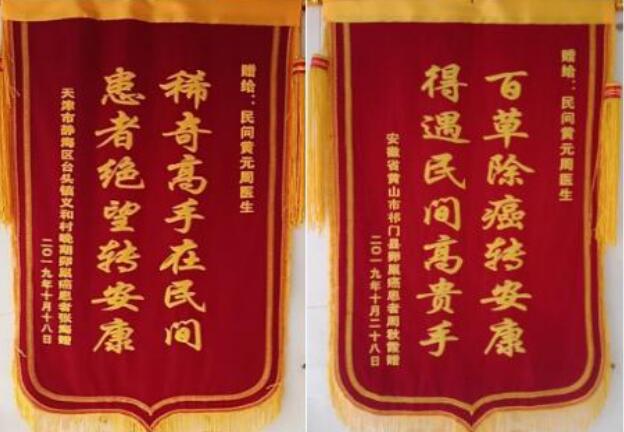 赠给：民间黄元周医生
稀奇高手在民间
患者绝望转安康
天津市静海区台头镇义和村晚期卵巢癌患者张海赠
二〇一九年十月十八日
赠给：民间黄元周医生
百草除癌转安康
得遇民间高贵手
安徽省黄山市祁门县卵巢癌患者周秋霞赠
二〇一九年十月二十八日